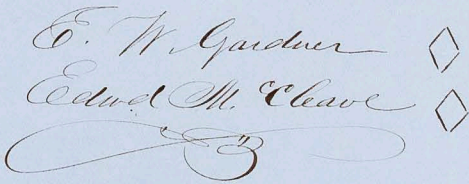 E. W. Gardner
Edwd. M. McCleave